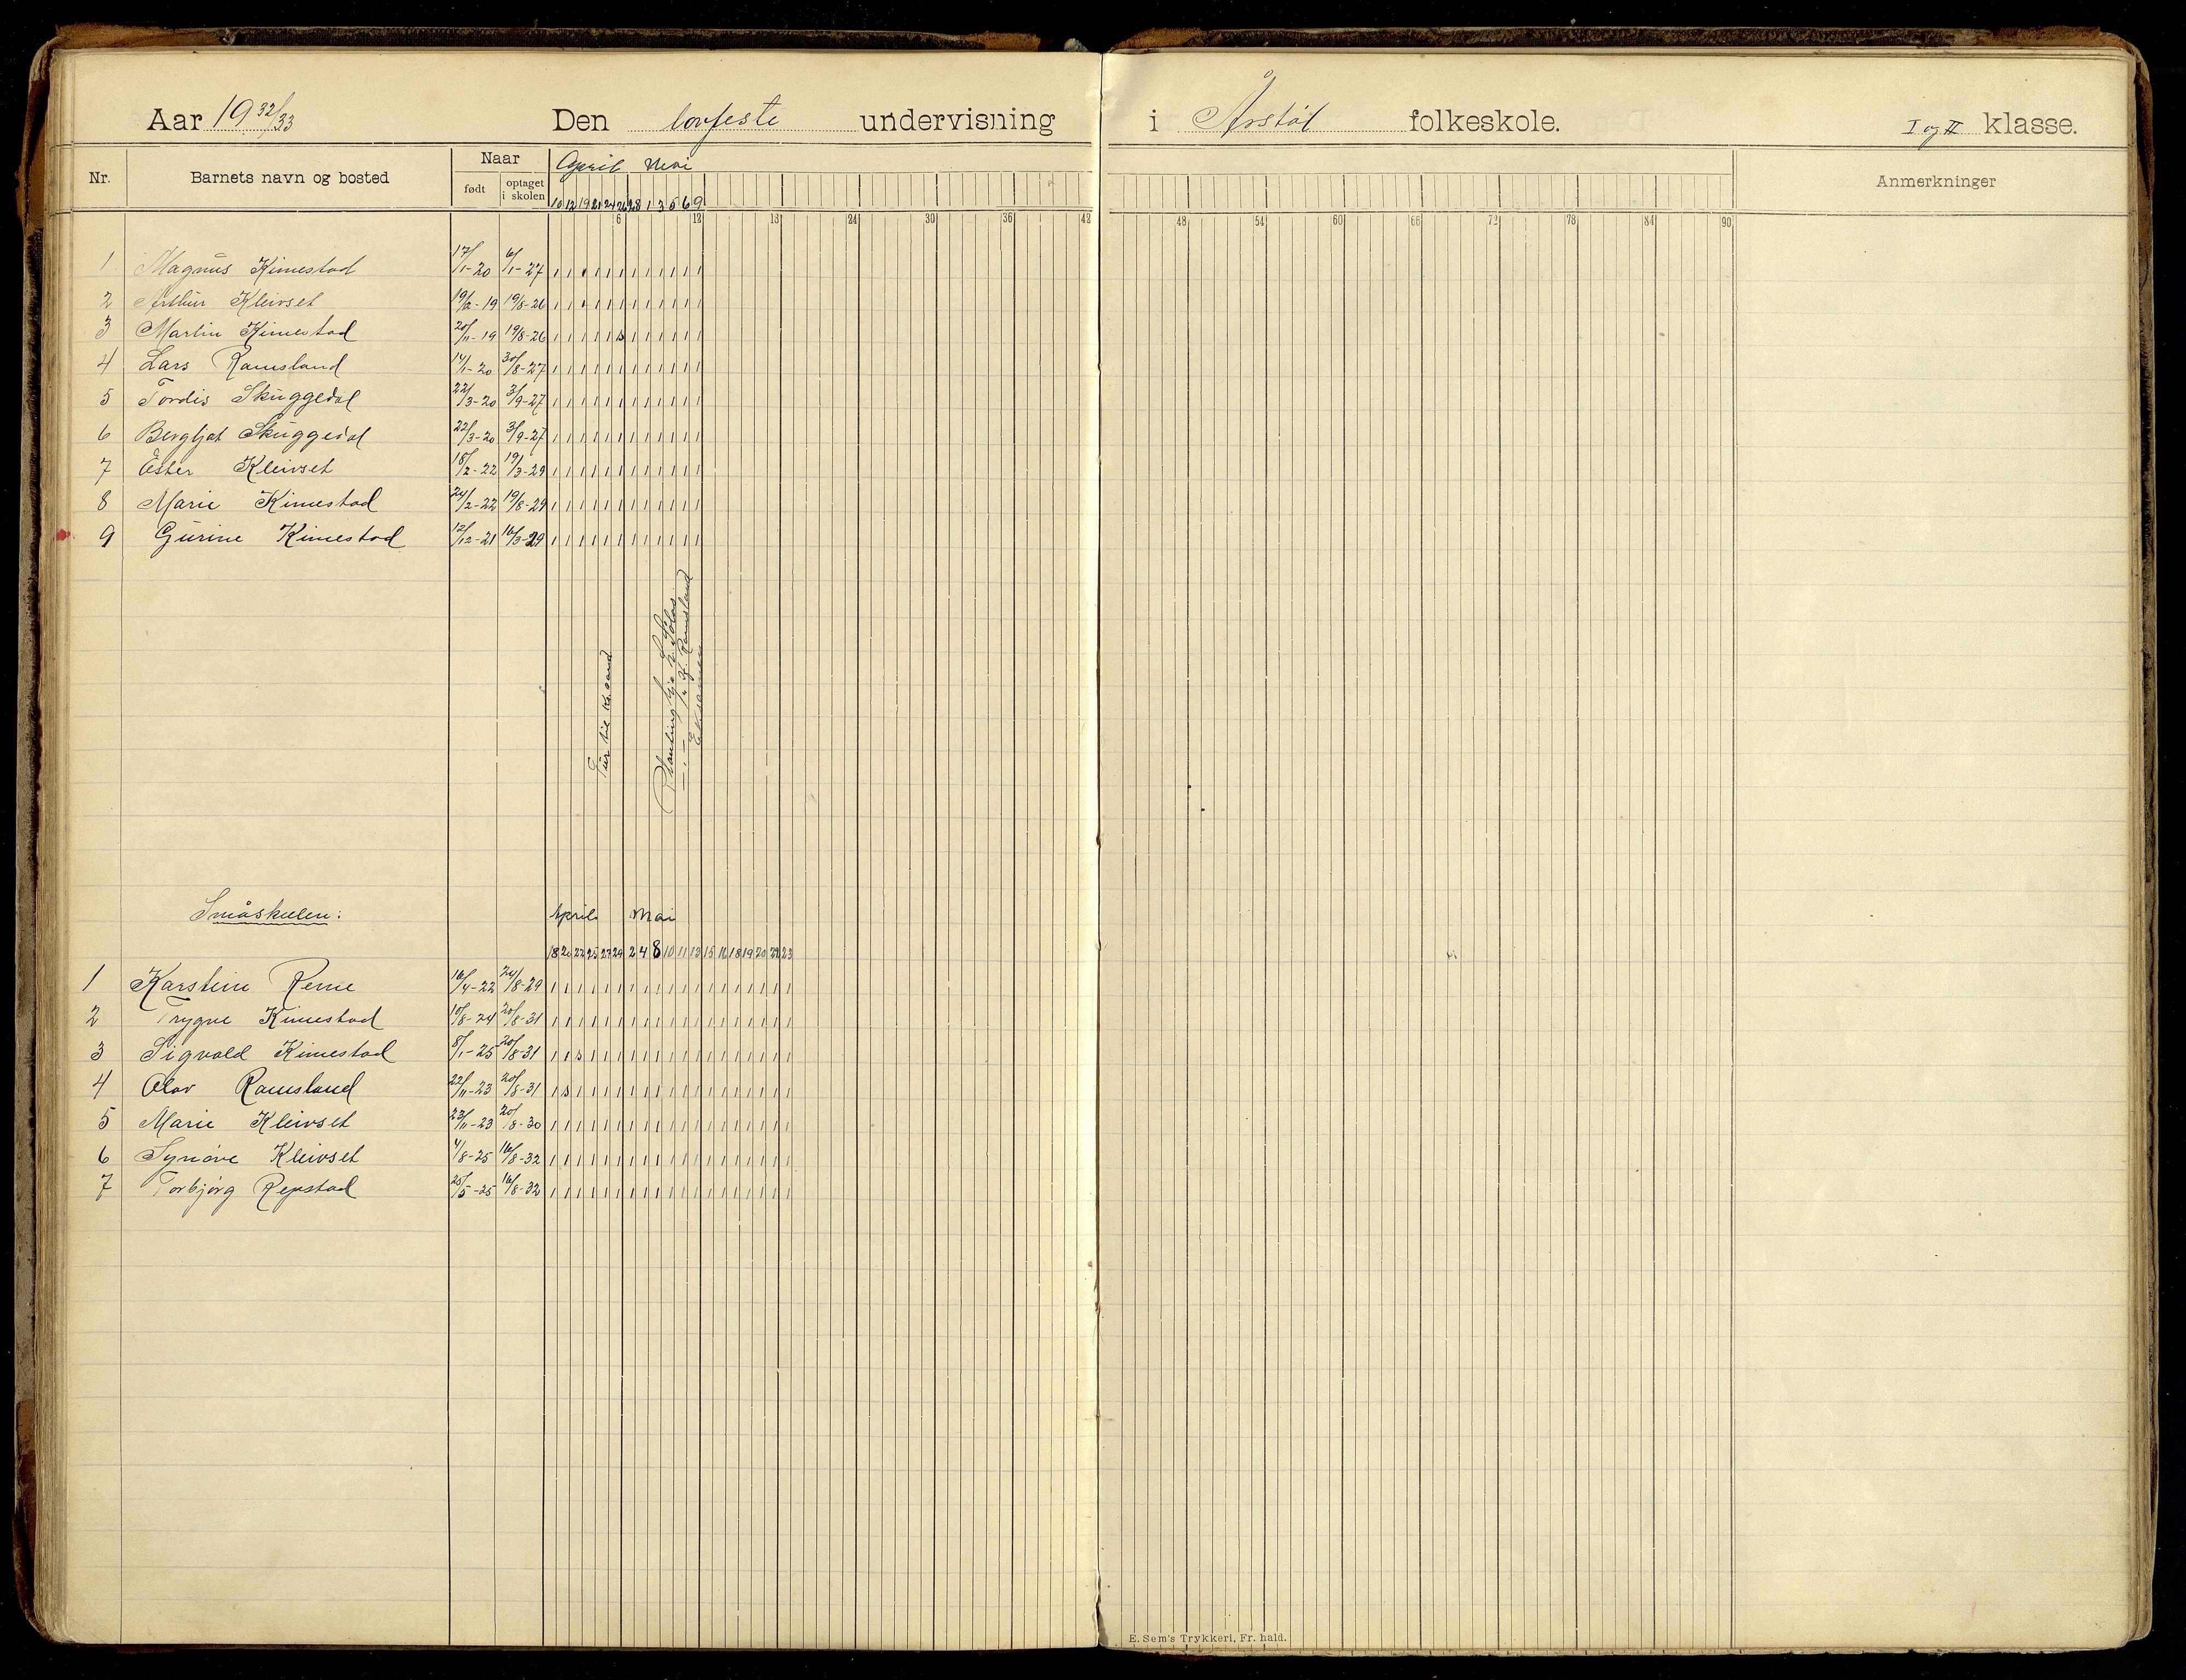 Aar 19 32/33 Den lovfeste undervisning i Årstøl folkeskole. I og II klasse.
Nr. Barnets navn og bosted Naar født optaget i skolen April Mai Anmerkninger
10 12 19 21 24 26 28 1 3 5 6 9
6 12 18 24 30 36 42 48 54 60 66 72 78 84 90
1 Magnus Kimestad 17/1-20 6/1-27
2 Arthur Kleivset 19/2-19 19/8-26
3 Martin Kimestad 20/11-19 19/8-26
4 Lars Ramsland 14/1-20 30/8-27
5 Tordis Skuggedal 22/3-20 3/9-27
6 Bergljot Skuggedal 22/3-20 3/9-27
7 Ester Kleivset 18/2-22 19/3-29
8 Marie Kimestad 24/2-22 19/8-29
9 Gurine Kimestad 12/12-21 16/3-29
Tur til Kr.sand
Planting hjå
Ramsland
Eksamen
Småskulen: April Mai
18 20 22 25 27 29 2 4 8 10 11 13 15 16 18 19 20 22 23
1 Karstein Reme 16/4-22 24/8-29
2 Trygve Kimestad 10/8-24 20/8-31
3 Sigvald Kimestad 8/1-25 20/8-31
4 Olav Ramsland 22/11-23 20/8-31
5 Marie Kleivset 23/11-23 20/8-30
6 Synøve Kleivset 4/8-25 16/8-32
7 Torbjørg Repstad 25/5-25 16/8-32
E. Sem's Trykkeri, Fr. hald.